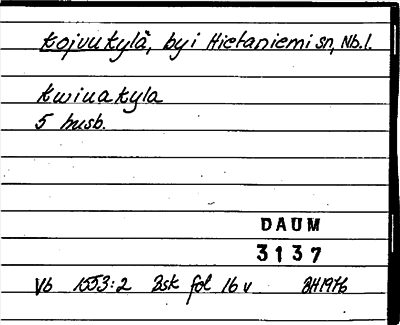 Koivukylä, by i Hietaniemi sn, Nb.l.
Kwiuakyla
5 husb.
DAUM
3137
Vb 1553:2 Bsk fol 16 v BH1976